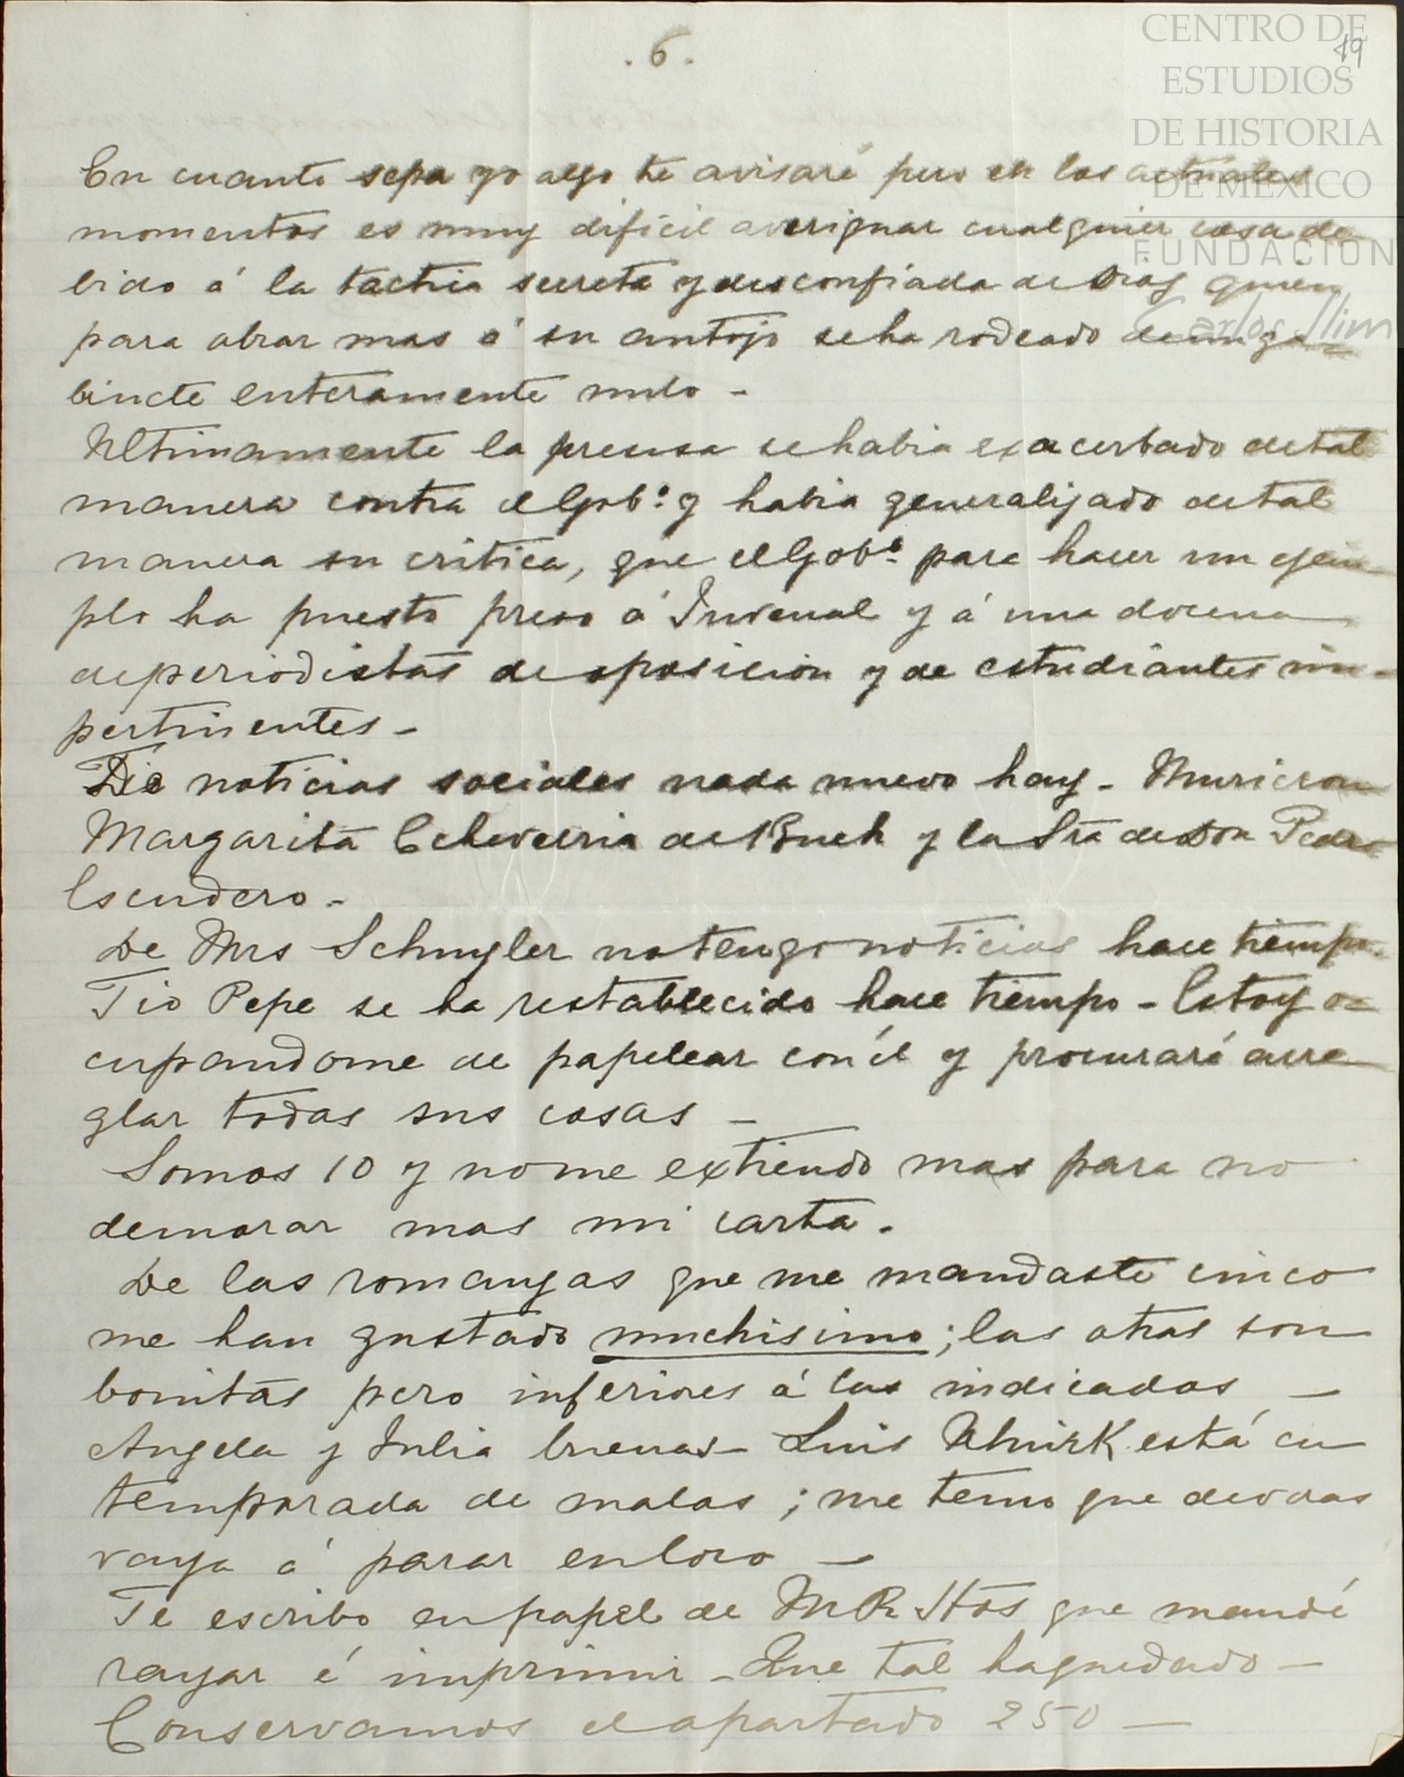 . 6 .
19
CENTRO DE
ESTUDIOS
DE HISTORIA
DE MÉXICO
FUNDACIÓN
Carlos Slim
En cuanto sepa yo algo te avisaré pero en los actuales
momentos es muy dificil averiguar cualquier cosa de
bido á la tactica secreta y desconfiada de Diaz quien
para obrar mas á su antojo se ha rodeado de un ga
binete enteramente nulo -
Ultimamente la prensa se habia exacerbado de tal
manera contra el Gobº. y habia generalizado de tal
manera su critica, que el Gobº. para hacer un ejem
plo ha puesto preso á Juvenal y á una docena
de periodistas de oposicion y de estudiantes im-
pertinentes -
De noticias sociales nada nuevo hay - Murieron
Margarita Echeverria de Buch y la Sra de Don Pedro
Escudero -
De Mrs Schuyler no tengo noticias hace tiempo.
Tio Pepe se ha restablecido hace tiempo - Estoy o
cupandome de papelear con él y procuraré arre
glar todas sus cosas -
Somos 10 y no me extiendo mas para no
demorar mas mi carta.
De las romanzas que me mandaste cinco
me han gustado muchisimo; las otras son
bonitas pero inferiores á las indicadas -
Angela y Julia buenas - Luis está en
temporada de malas ; me temo que deveras
vaya á parar en loco -
Te escribo en papel de M R Hos que mandé
rayar é imprimir - Que tal ha quedado -
Conservamos el apartado 250 -